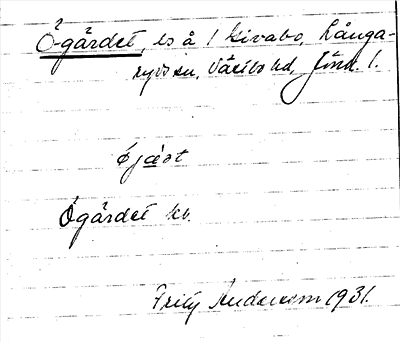 Ögärdet, ls å 1 Kivabo, Långa-
ryds sn, Västbo hd, Jönk. l.
Ögärdet kv.
Fritz Andersson 1931.